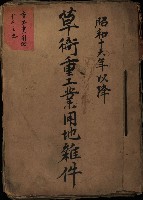 昭和十六年以降
草衙重工業用地雜件